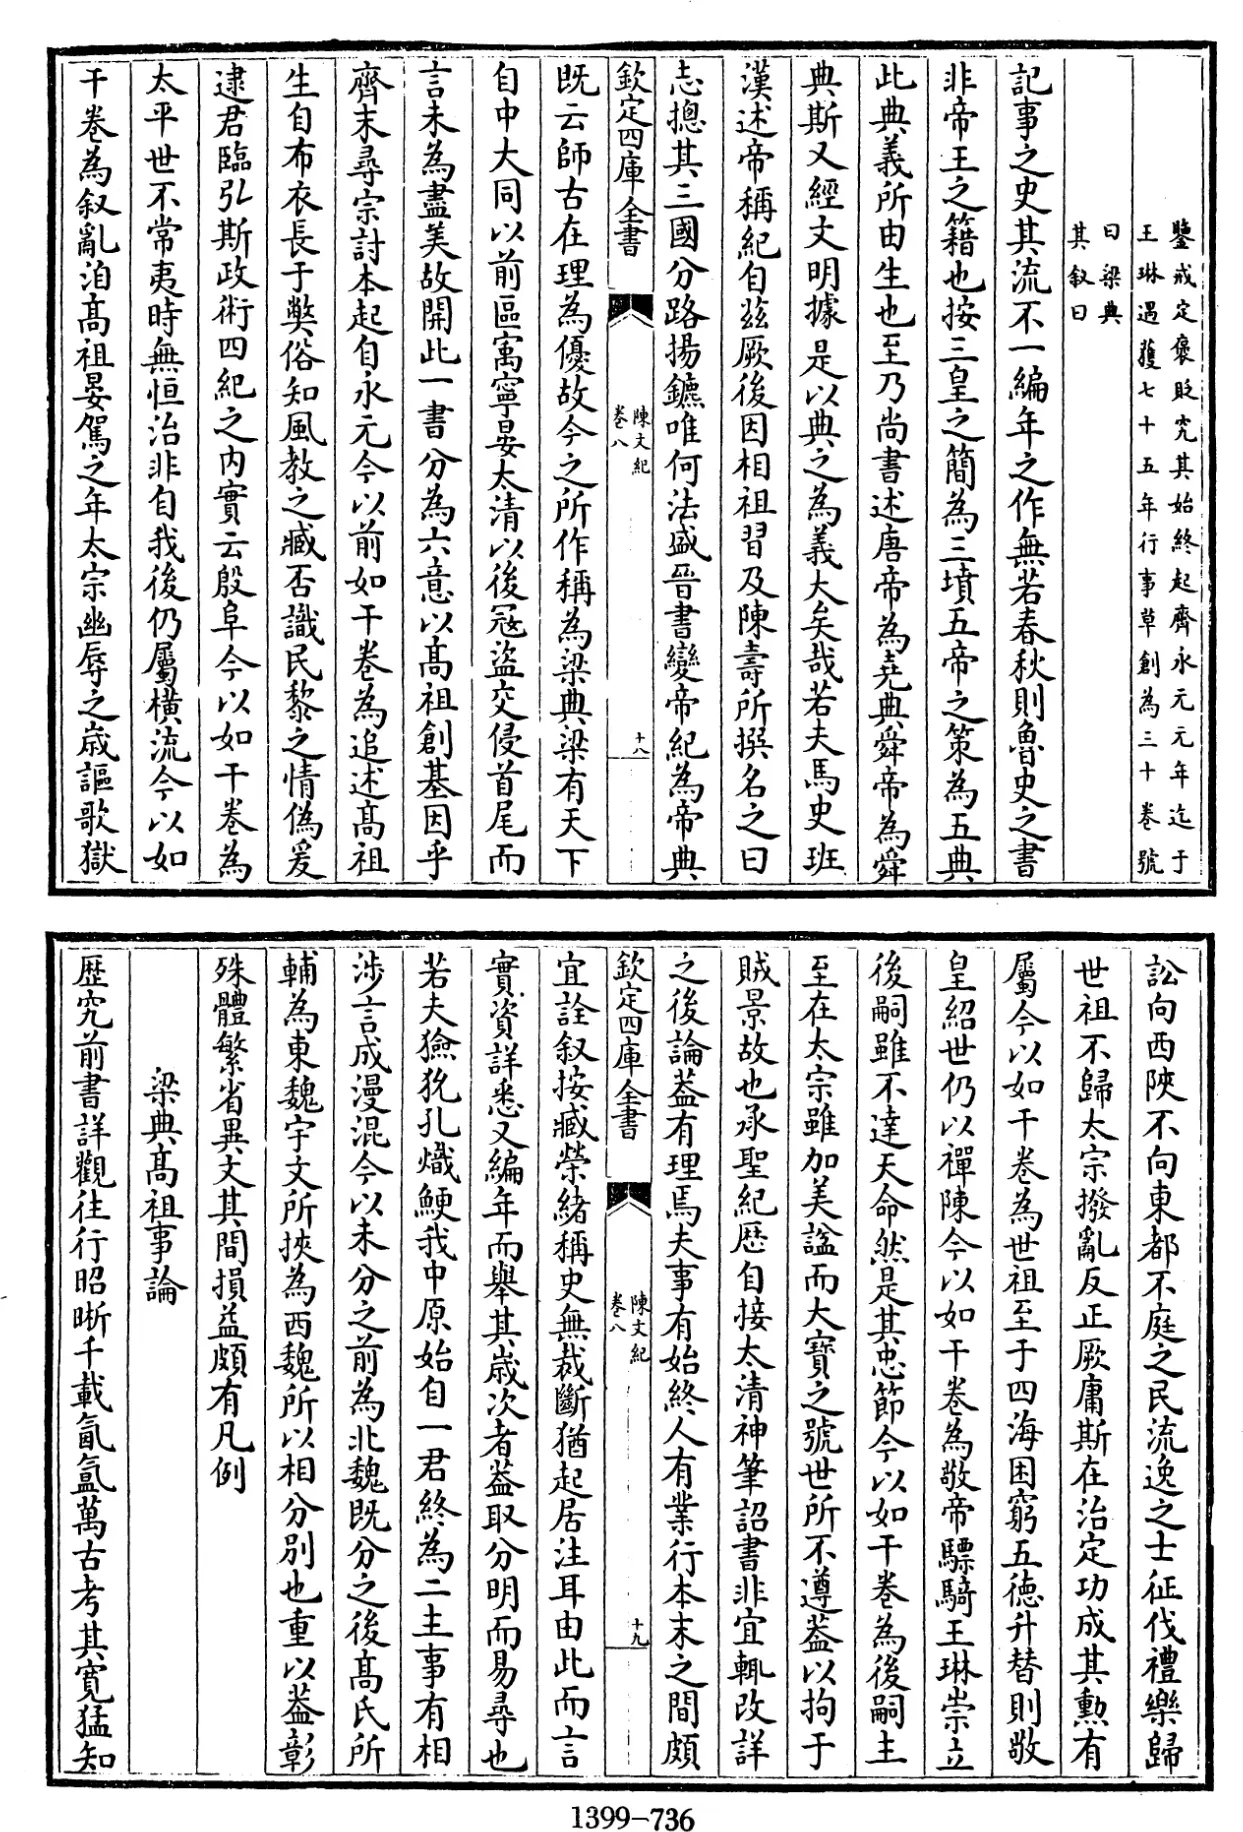 鑒戒定襃貶究其始終起齊永元元年迄于
王琳遇獲七十五年行事草創為三十卷號
曰梁典
其叙曰
記事之史其流不一編年之作無若春秋則魯史之書
非帝王之籍也按三皇之簡為三墳五帝之策為五典
此典義所由生也至乃尚書述唐帝為堯典舜帝為舜
典斯又經文明據是以典之為義大矣哉若夫馬史班
漢述帝稱紀自兹厥後因相祖習及陳壽所撰名之曰
志摠其三國分路揚鑣唯何法盛晉書變帝紀為帝典
欽定四庫全書
陳文紀
卷八
十八
既云師古在理為優故今之所作稱為梁典梁有天下
自中大同以前區寓寧晏太清以後寇盜交侵首尾而
言未為盡美故開此一書分為六意以髙祖創基因乎
齊末尋宗討本起自永元今以前如干卷為追述髙祖
生自布衣長于獘俗知風教之臧否識民黎之情偽爰
逮君臨弘斯政術四紀之内實云殷阜今以如干卷為
太平世不常夷時無恒治非自我後仍屬横流今以如
干卷為叙亂洎髙祖晏駕之年太宗幽辱之歳謳歌獄
訟向西陜不向東都不庭之民流逸之士征伐禮樂歸
世祖不歸太宗撥亂反正厥庸斯在治定功成其勲有
屬今以如干卷為世祖至于四海困窮五徳升替則敬
皇紹世仍以禪陳今以如干卷為敬帝驃騎王琳崇立
後嗣雖不達天命然是其忠節今以如干卷為後嗣主
至在太宗雖加美諡而大寳之號世所不遵葢以拘于
賊景故也承聖紀歴自接太清神筆詔書非宜輒改詳
之後論葢有理焉夫事有始終人有業行本末之間頗
欽定四庫全書
陳文紀
卷八
十九
宜詮叙按臧榮緒稱史無裁斷猶起居注耳由此而言
實資詳悉又編年而舉其歳次者葢取分明而易尋也
若夫獫狁孔熾鯁我中原始自一君終為二主事有相
涉言成漫混今以未分之前為北魏既分之後髙氏所
輔為東魏宇文所挾為西魏所以相分别也重以葢彰
殊體繁省異文其間損益頗有凡例
梁典髙祖事論
歴究前書詳觀往行昭晰千載氤氲萬古考其寛猛知
1399-736